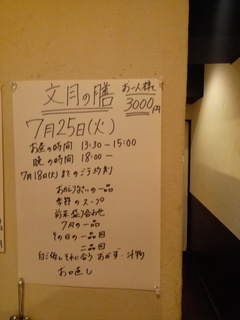 文月の膳
お一人様
3000円
7月25日(火)
お昼の時間 13:30-15:00
晩の時間 18:00-
7月18日(火)までのご予約制
一品
季節のスープ
前菜盛り合わせ
7月の一品
その日の一品目
二品目
白ご飯とそれに合う おかず、汁物
お口直し